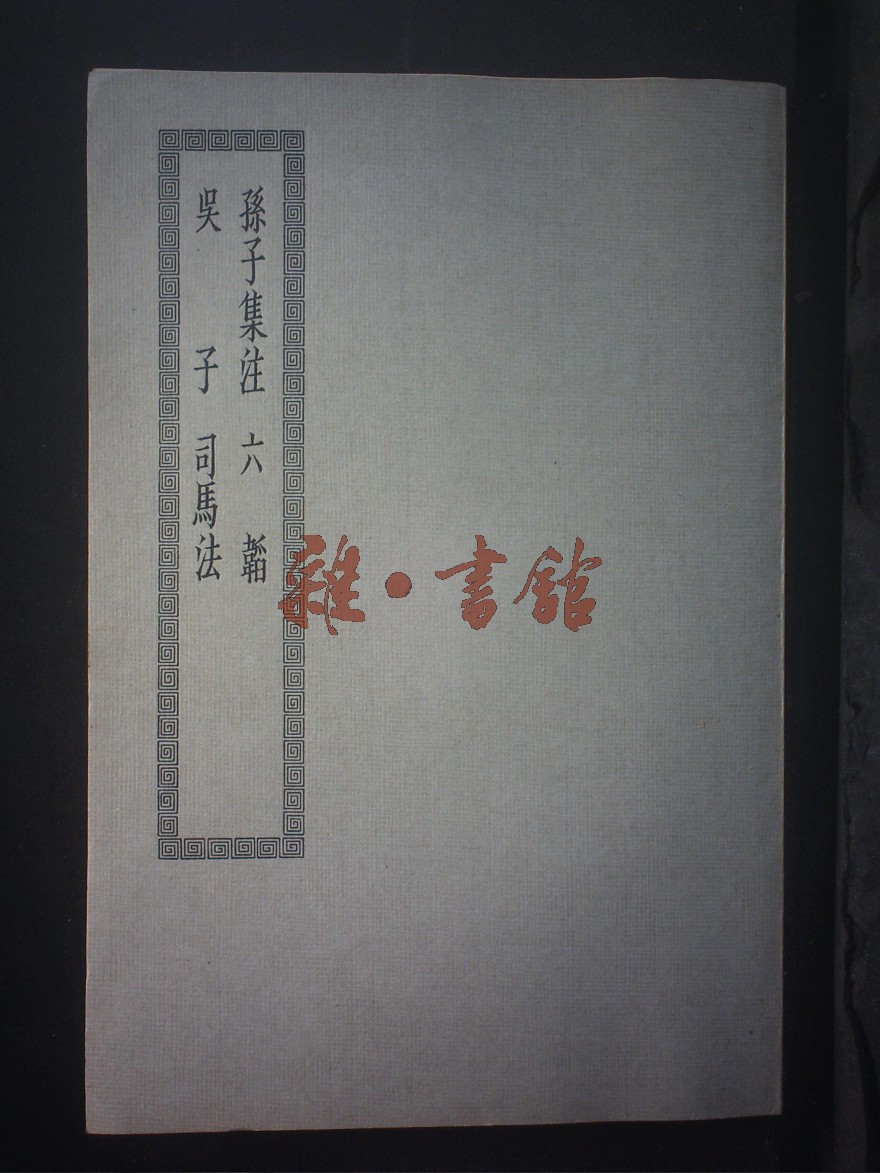 孫子集注 六韜
吳子 司馬法
雜·書館